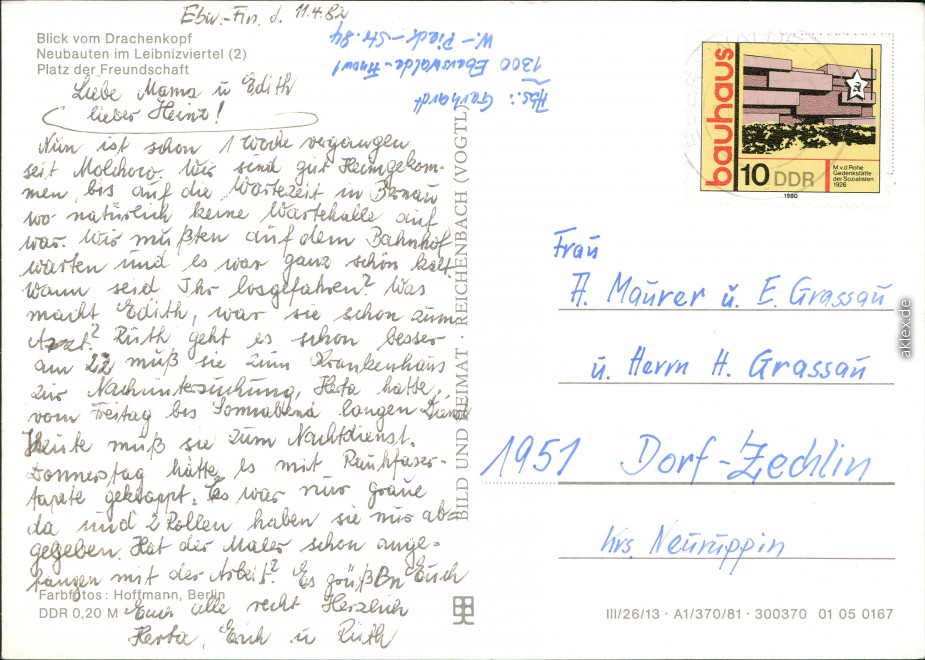 Ebw.-Fin. d. 11.4.82
Blick vom Drachenkopf
Neubauten im Leibnizviertel (2)
Platz der Freundschaft
Liebe Mama u Edith
lieber Heinz!
Nun ist schon 1 Woche vergangen
seit Molchow. Wir sind gut Heimgekom-
men, bis auf die Wartezeit in
wo natürlich keine Wartehalle auf
war. Wir mußten auf dem Bahnhof
warten und es war ganz schön kalt.
Wann seid Ihr losgefahren? Was
macht Edith, war sie schon zum
Arzt? Ruth geht es schon besser
am 22 muß sie zum Krankenhaus
zur Nachuntersuchung, Herta hatte,
vom Freitag bis Sonnabend langen Dienst
Heute muß sie zum Nachtdienst.
Donnerstag hätte es mit Rauhfaser-
tapete geklappt. Es war nur graue
da und 2 Rollen haben sie nur ab-
gegeben. Hat der Maler schon ange-
fangen mit der Arbeit? Es grüßen Euch
Farbfotos: Hoffmann, Berlin
Euer alle recht Herzlich
DDR 0,20 M
Herta, Erich u Ruth
BILD UND HEIMAT · REICHENBACH (VOGTL)
Abs.: Gerhardt
1300 Eberswalde-Finow 1
W.-Pieck-Str. 84
bauhaus
10 DDR
M.v.d.Rohe
Gedenkstätte
der Sozialisten
1926
1980
Frau
A. Maurer u. E. Grassau
u. Herrn H. Grassau
1951 Dorf-Zechlin
Krs. Neuruppin
III/26/13 · A1/370/81 · 300370 01 05 0167
aklex.de